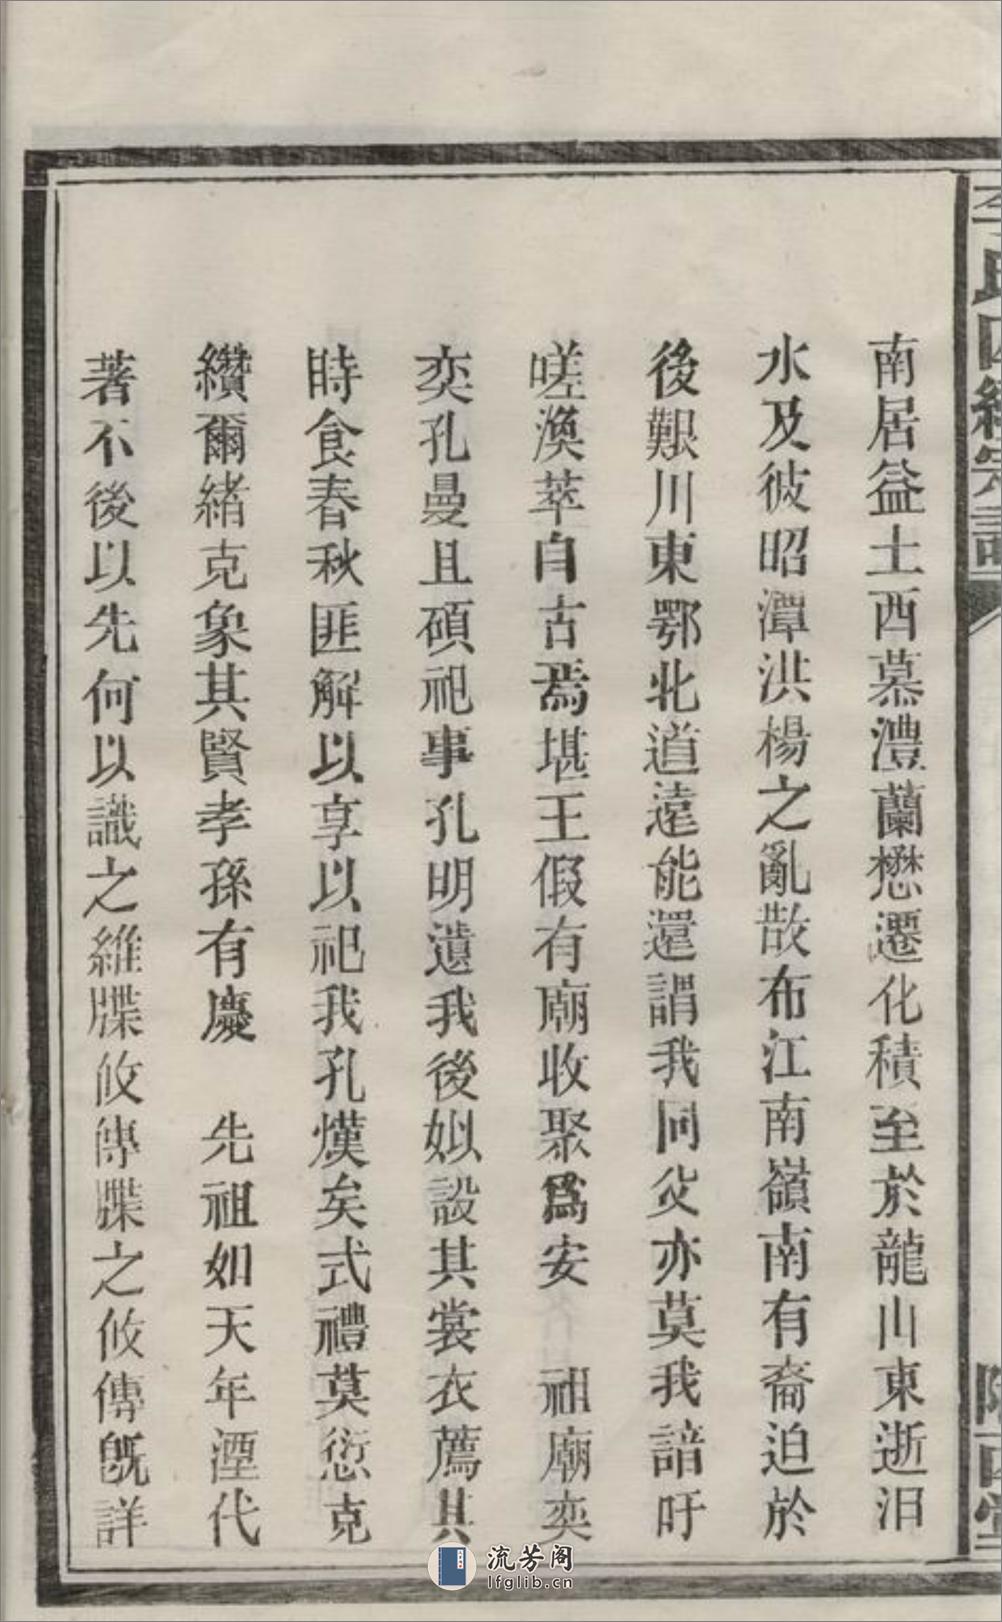 南居益土西慕澧蘭懋遷化積至於龍山東逝汨
水及彼昭潭洪楊之亂散布江南嶺南有裔迫於
後艱川東鄂北道遠能還謂我同父亦莫我諳吁
嗟渙萃自古焉堪王假有廟收聚爲安　祖廟奕
奕孔曼且碩祀事孔明遺我後姒設其裳衣薦其
時食春秋匪解以享以祀我孔熯矣式禮莫愆克
纘爾緒克象其賢孝孫有慶　先祖如天年湮代
著不後以先何以識之維牒攸傳牒之攸傳旣詳
流芳阁
lfglib.cn